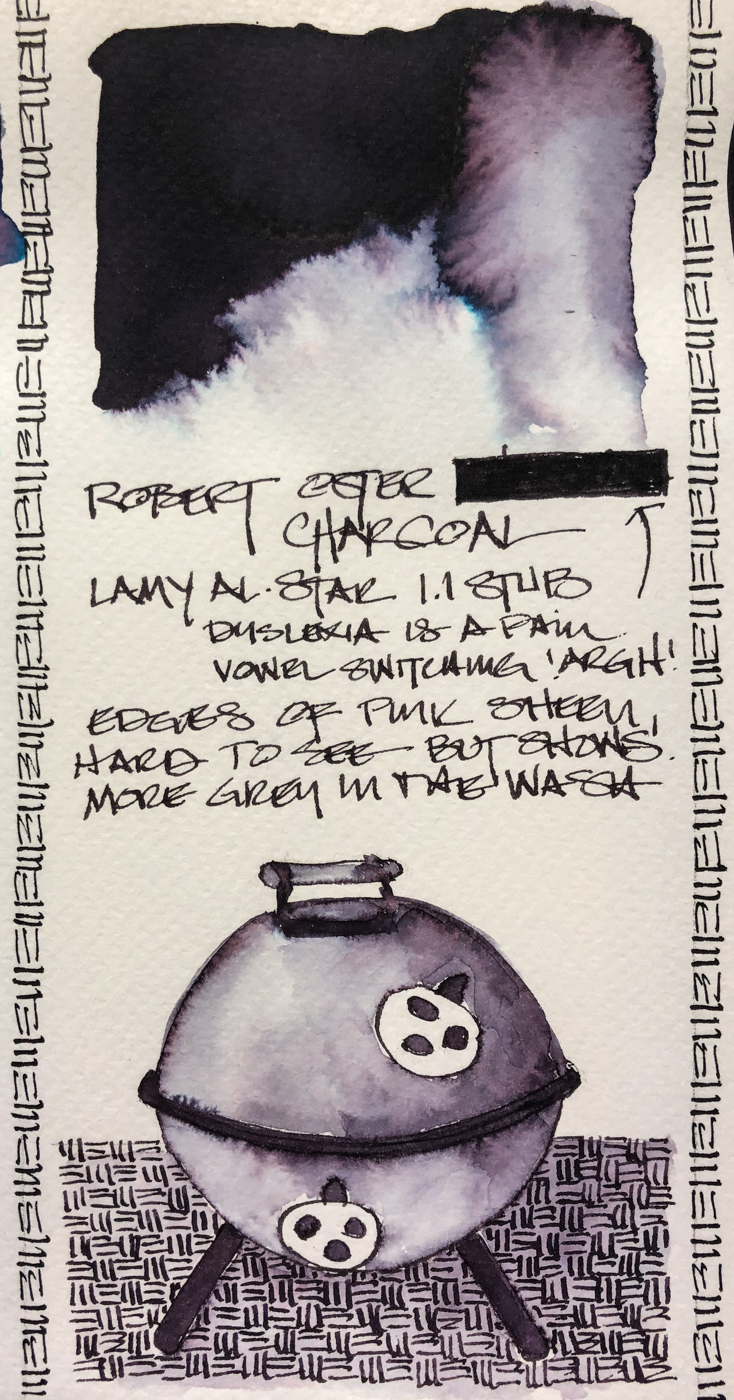 ROBERT OSTER
CHARCOAL
LAMY AL·STAR 1.1 STUB
DYSLEXIA IS A PAIN.
VOWEL SWITCHING 'ARGH'!
EDGES OF PINK SHEEN,
HARD TO SEE BUT SHOWS.
MORE GREY IN THE WASH